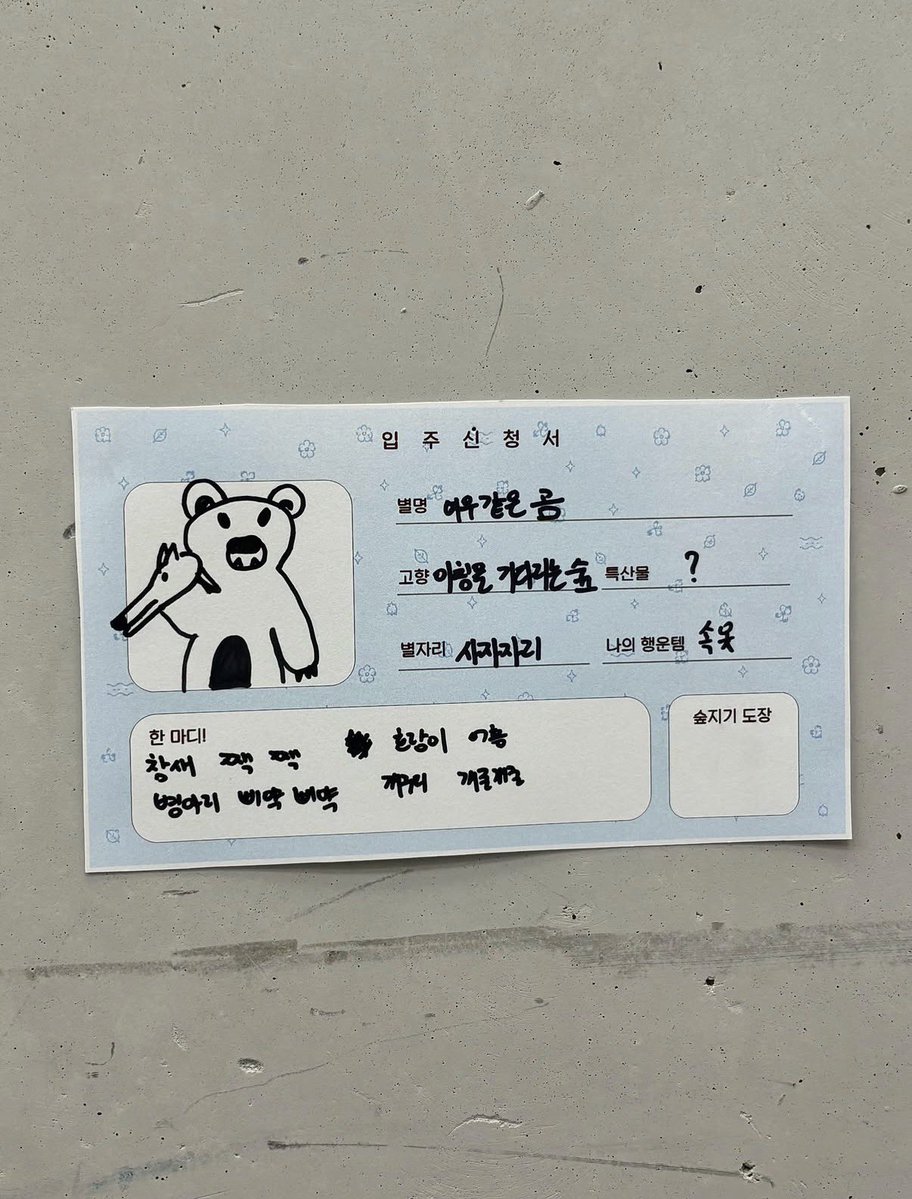 입주신청서
별명 여우같은 곰
고향 아침을 기다리는 숲 특산물 ?
별자리 사자자리 나의 행운템 속옷
한 마디! 숲지기 도장
참새 짹 짹 호랑이 어흥
병아리 삐약 삐약 개구리 개굴개굴